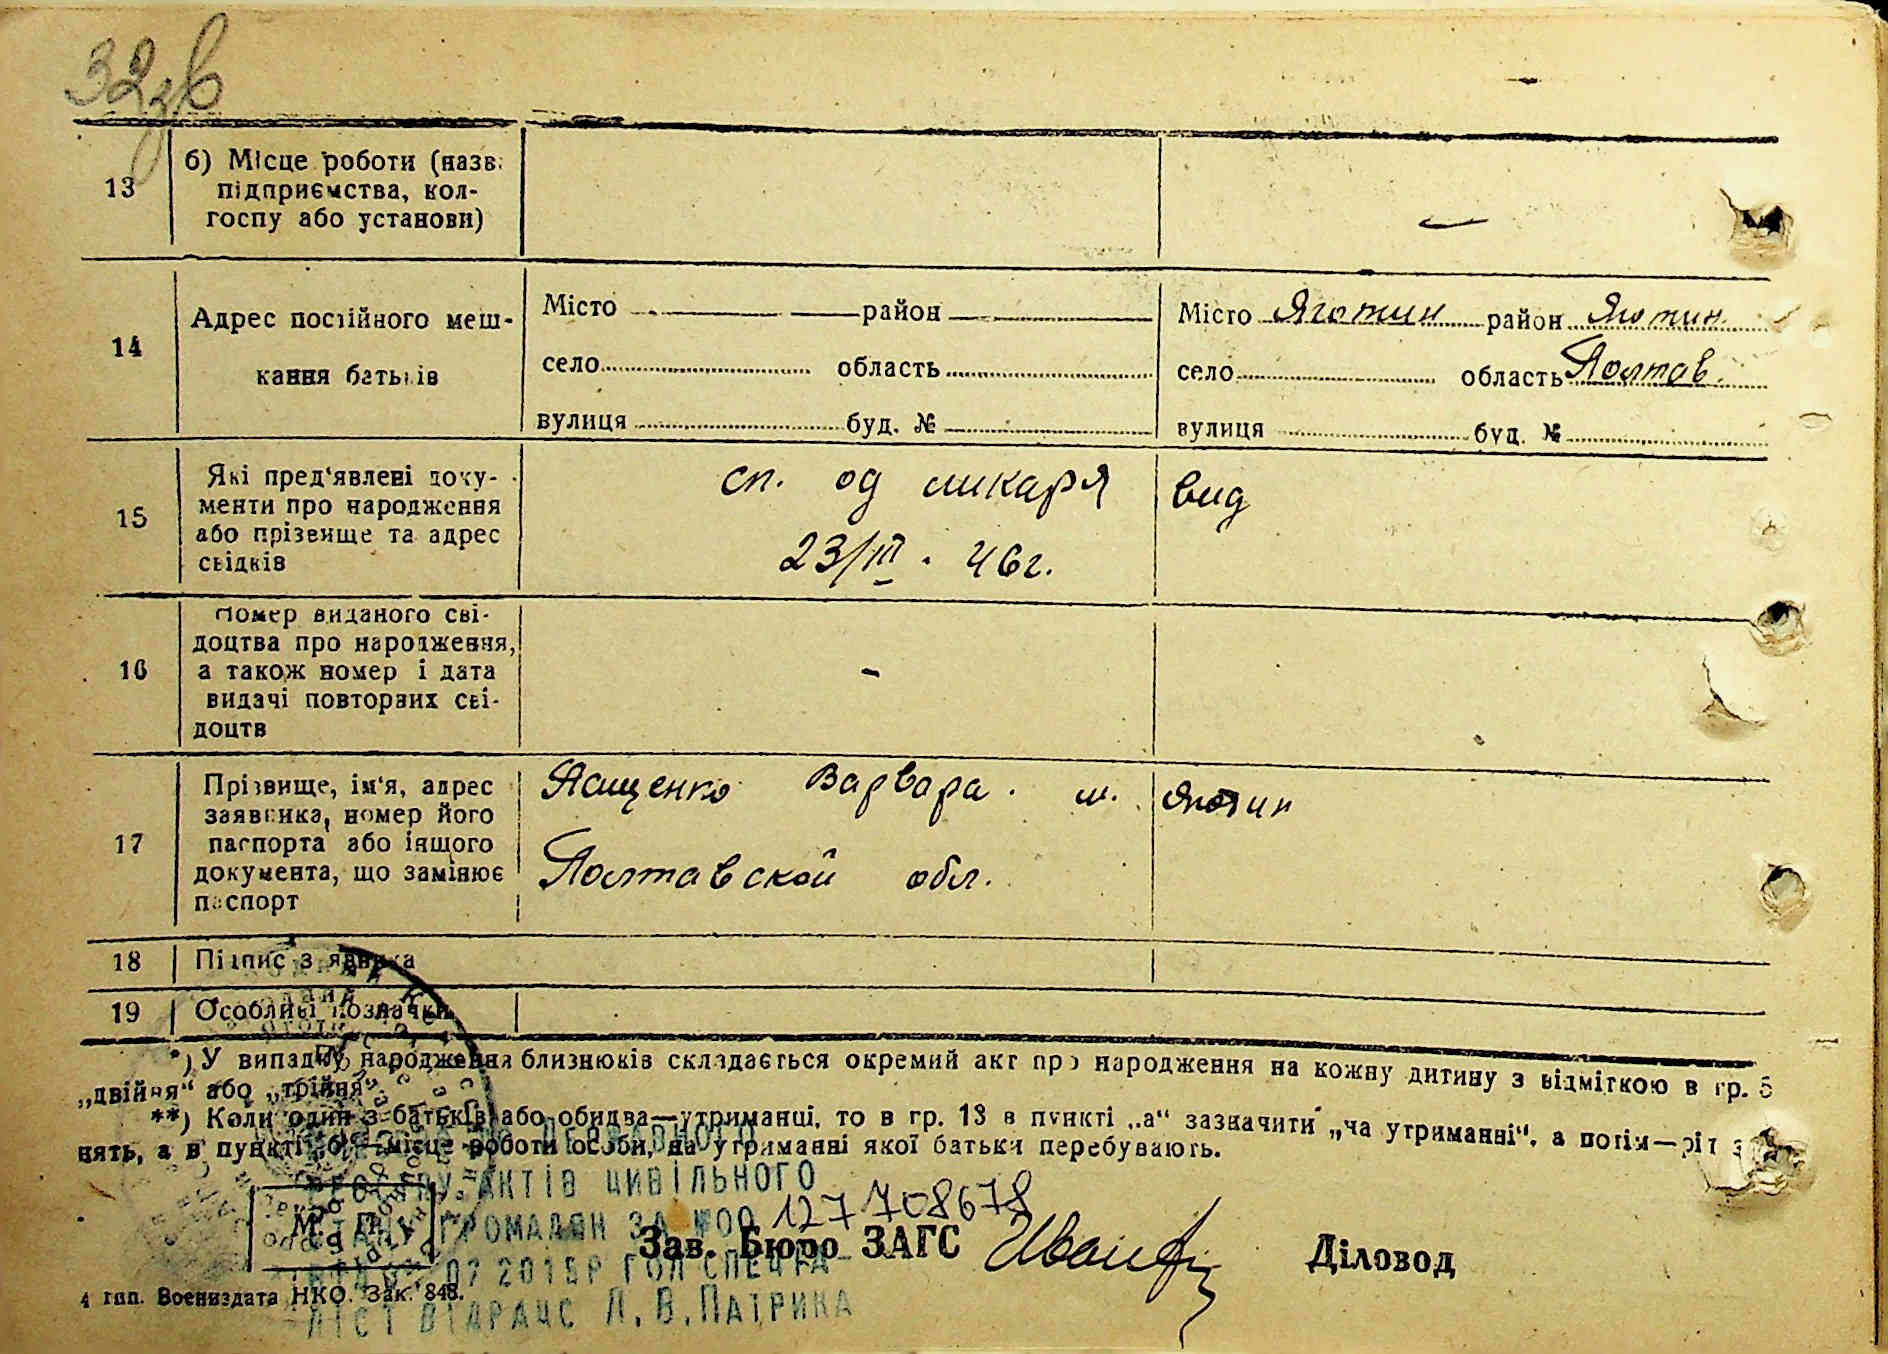 32зв
13
б) Місце роботи (назв.
підприємства, кол-
госпу або установи)
14
Адрес постійного меш-
кання батьків
Місто район
село область
вулиця буд. №
Місто Яготин район Яготин
село область Полтав.
вулиця буд. №
15
Які пред'явлені доку-
менти про народження
або прізвище та адрес
свідків
сп. од ликаря вид
23/III. 46г.
16
Номер виданого сві-
доцтва про народження,
а також номер і дата
видачі повторних сві-
доцтв
17
Прізвище, ім'я, адрес
заявника, номер його
паспорта або іншого
документа, що замінює
паспорт
Ященко Варвара. м. Яготин
Полтавской обл.
18 Підпис заявника
19 Особливі позначки
*) У випадку народження близнюків складається окремий акт про народження на кожну дитину з відміткою в гр. 5
„двійня“ або „трійня“
**) Коли один з батьків або обидва—утриманці, то в гр. 13 в пункті „а“ зазначити „на утриманні“, а потім—
нять, а в пункті „б“—місце роботи особи, на утриманні якої батьки перебувають.
ДЕРЖАВНОГО
РЕЄСТРУ АКТІВ ЦИВІЛЬНОГО
СТАНУ ГРОМАДЯН ЗА №00127708678
07 2015Р ГОЛ СПЕЦІА-
ЛІСТ ВІДРАЦС Л.В.ПАТРИКА
М. П.
Зав. Бюро ЗАГС
Діловод
4 тип. Воениздата НКО. Зак. 848.